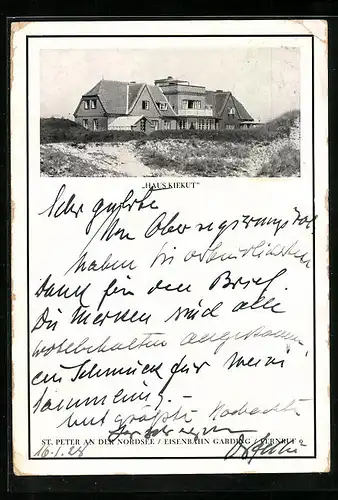 „HAUS KIEKUT"
Sehr geehrte
Herr Oberregierungsrat
haben Sie verbindlichsten
Dank für den Brief.
Die Marken sind alle
wohlbehalten angekommen
ein Schmuck für meine
Sammlung. –
Mit größter Hochacht.
ST. PETER AN DER NORDSEE / EISENBAHN GARDING / FERNRUF 9
16.1.28